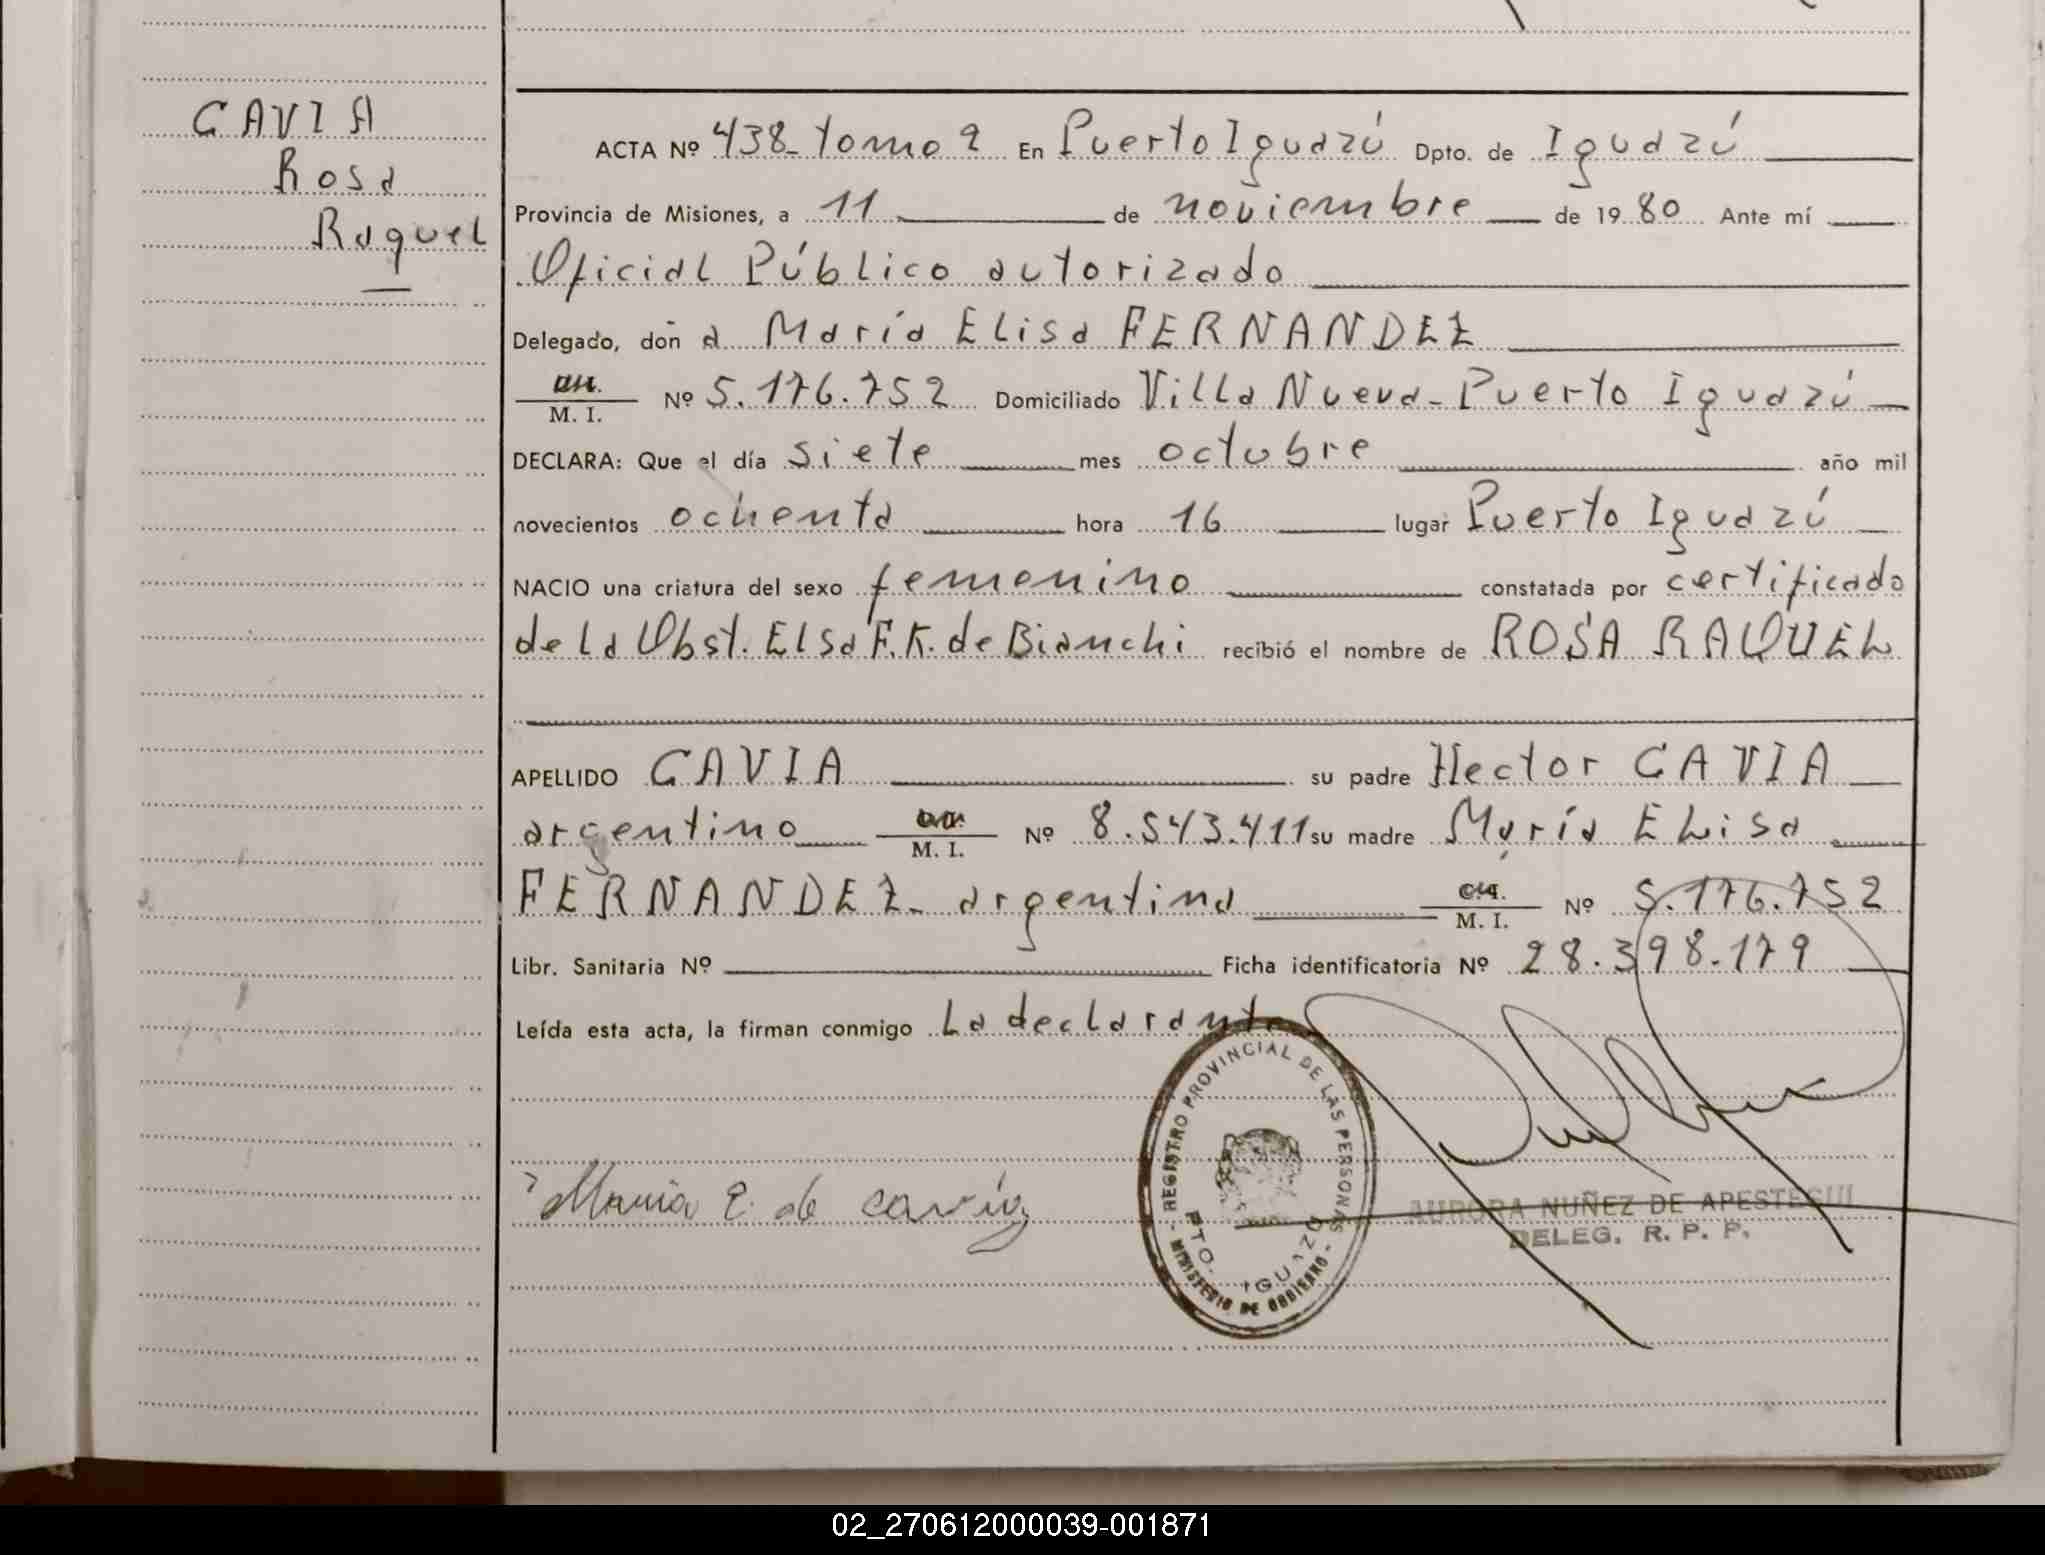 GAVIA
Rosa
Raquel
ACTA Nº 438 tomo 2 En Puerto Iguazú Dpto. de Iguazú
Provincia de Misiones, a 11 de noviembre de 1980 Ante mí
Oficial Público autorizado
Delegado, doña María Elisa FERNANDEZ
M. I. Nº 5.176.752 Domiciliado Villa Nueva - Puerto Iguazú
DECLARA: Que el día siete mes octubre año mil
novecientos ochenta hora 16 lugar Puerto Iguazú
NACIO una criatura del sexo femenino constatada por certificado
de la Obst. Elsa F. K. de Bianchi recibió el nombre de ROSA RAQUEL
APELLIDO GAVIA su padre Hector GAVIA
argentino M. I. Nº 8.543.411 su madre María Elisa
FERNANDEZ - argentina M. I. Nº 5.176.752
Libr. Sanitaria Nº Ficha identificatoria Nº 28.398.179
Leída esta acta, la firman conmigo la declarante
REGISTRO PROVINCIAL DE LAS PERSONAS
PTO. IGUAZU
- MINISTERIO DE GOBIERNO -
Maria E. de Gavia
AURORA NUÑEZ DE APESTEGUI
DELEG. R. P. P.
02_270612000039-001871